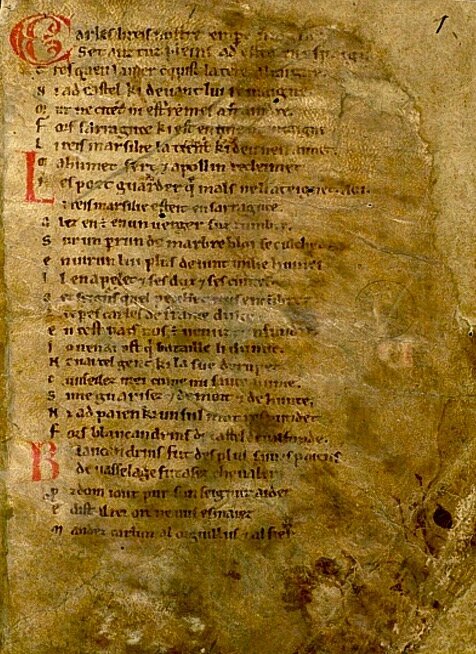 Carles li reis nostre emper
Set anz tuz pleins ad estet en espaigne
Tres quen la mer cunquist la tere altaigne
Ni ad castel ki deuant lui remaigne
Mur ne citet ni est remes a fraindre
Fors sarraguce ki est en une muntaigne
Li reis marsilie la tient ki deu nen aimet
Mahumet sert 7 apollin recleimet
Nes poet guarder q̃ mals ne li ateignet. aoi
Li reis marsilie esteit en sarraguce.
Alez en e en un uerger suz lumbre
Sur un perrun de marbre bloi se culchet
Enuirun lui plus de uint milie humes
Il en apelet 7 ses dux 7 ses cuntes
seignurs quel pecchet nus encumbret
carles de france dulce
En cest pais nos uenuz cunfundre
Io nen ai ost q̃ bataille li dunne
Nen ai tel gent ki la sue derumpet
Cunseilez mei cume mi saiue hume
Si me guarisez 7 de mort 7 de hunte
Ni ad paien ki un sul mot respundet
Fors blancandrins de castel de ualfunde
Blancandrins fut des plus saiues paiens
De uasselage fut asez cheualer
Prdom i out pur sun seignur aider
E dist al rei ore ne uus esmaiez
Mandez carlun al orguillus 7 al fier